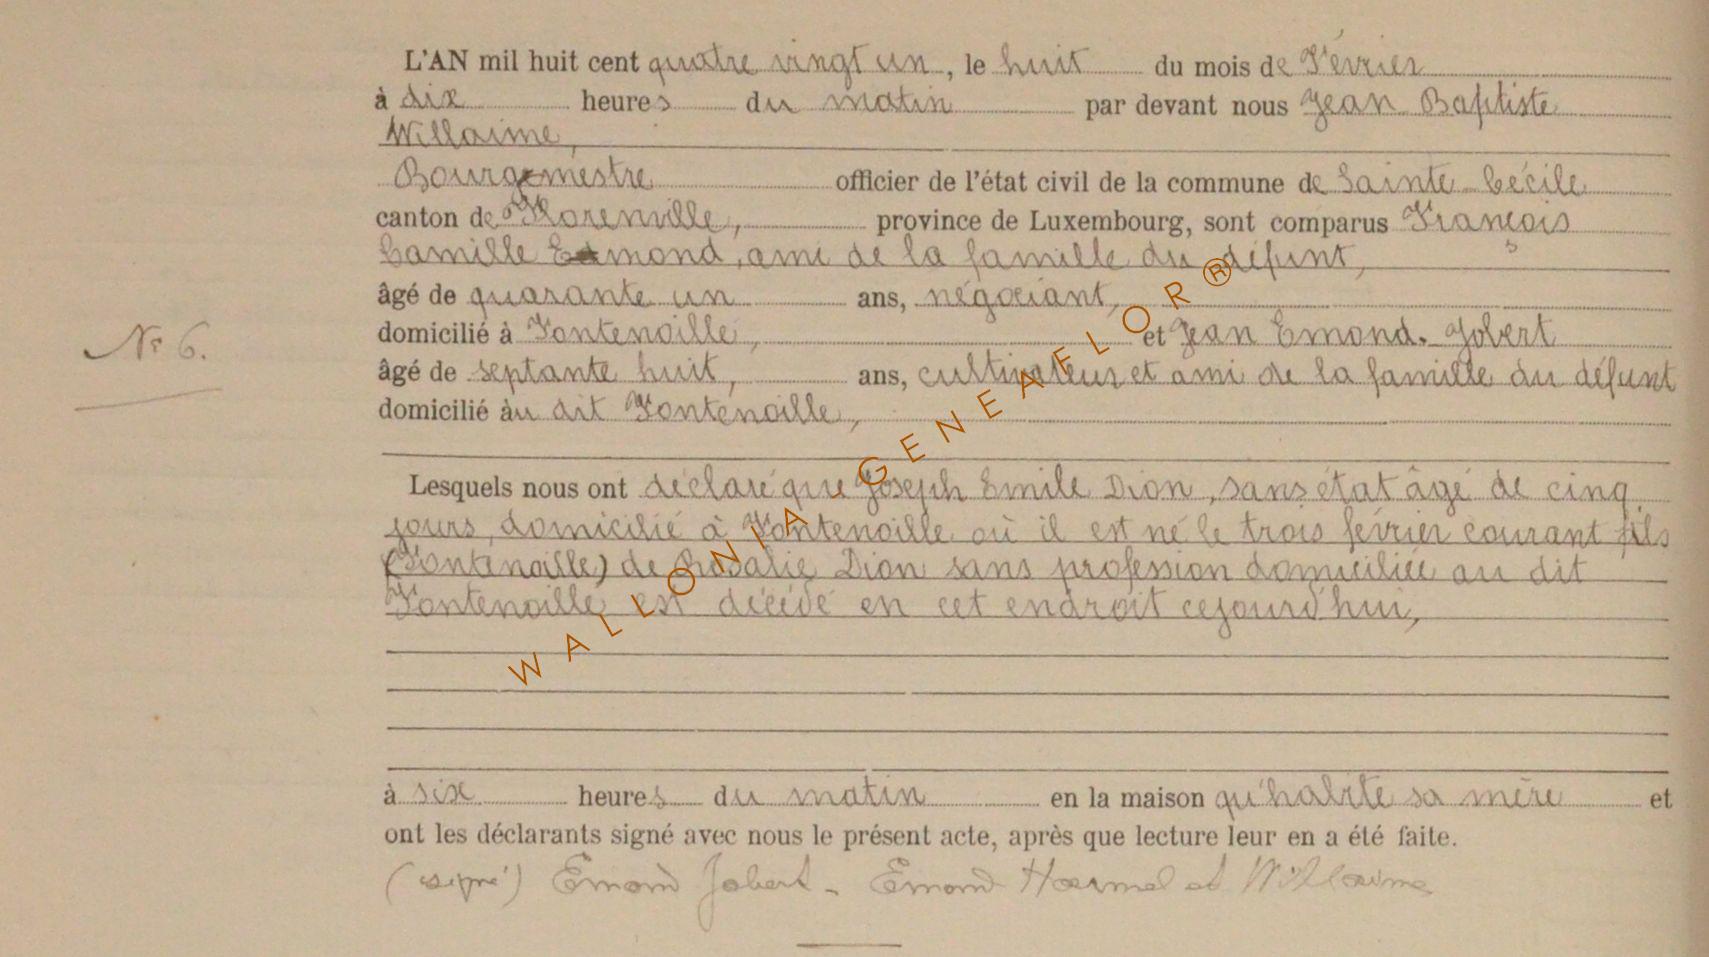 L'AN mil huit cent quatre vingt un, le huit du mois de Février
à dix heures du matin par devant nous Jean Baptiste
Willaime,
Bourgmestre officier de l'état civil de la commune de Sainte Cécile
canton de Florenville, province de Luxembourg, sont comparus François
Camille Emond, ami de la famille du défunt,
âgé de quarante un ans, négociant,
domicilié à Fontenoille, et Jean Emond-Jobert
N° 6.
âgé de septante huit, ans, cultivateur et ami de la famille du défunt
domicilié au dit Fontenoille,
Lesquels nous ont déclaré que Joseph Emile Dion, sans état âgé de cinq
jours, domicilié à Fontenoille où il est né le trois février courant fils
(Fontenoille) de Rosalie Dion sans profession domiciliée au dit
Fontenoille est décédé en cet endroit cejourd'hui,
à six heures du matin en la maison qu'habite sa mère et
ont les déclarants signé avec nous le présent acte, après que lecture leur en a été faite.
(signé) Emond Jobert - Emond Hormel et Willaime
WALLONIA GENEAFLOR®